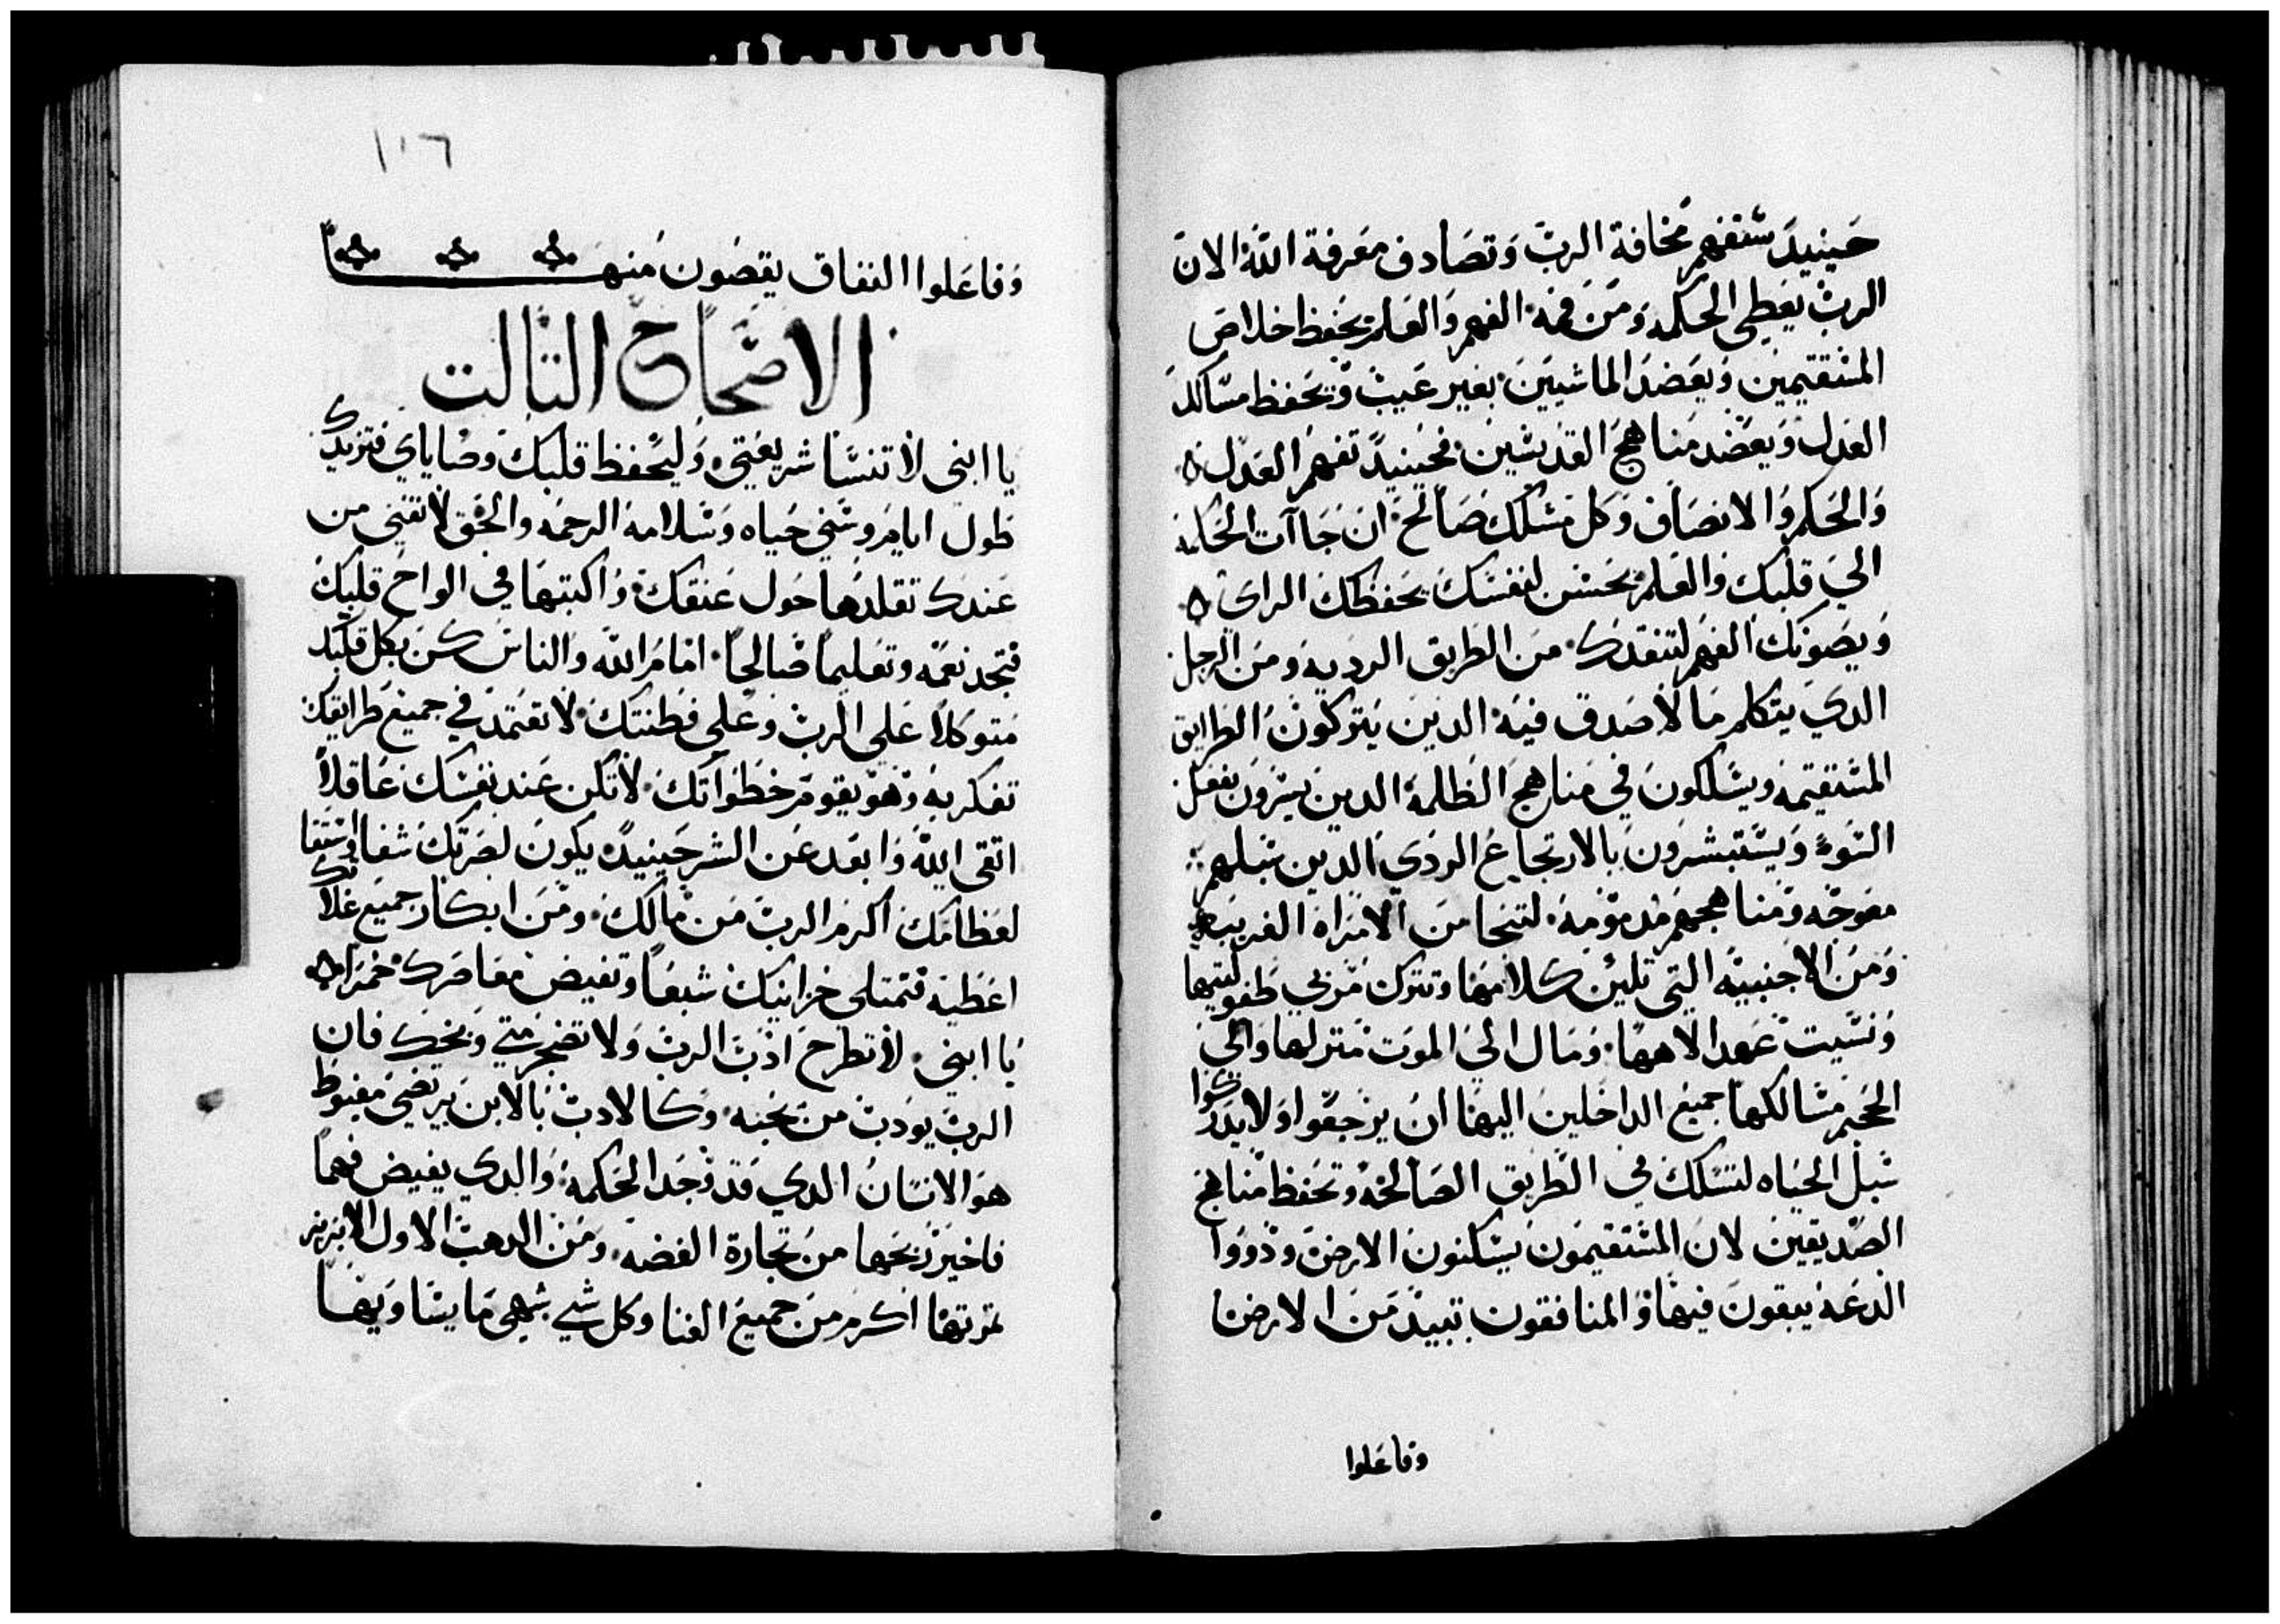 حينيد ستفهم مخافة الرب وتصادف معرفة الله لان
الرب يعطي الحكمه ومن فمه الفهم والعلم يحفظ خلاص
المستقيمين ويعضد الماشيين بغير عيب وتحفظ مسالك
العدل ويعضد مناهج القديسين فحينيد تفهم العدل
والحكم والانصاف وكل مسلك صالح ان جاآت الحكمه
الي قلبك والعلم بحسن لنفسك يحفظك الراي
ويصونك الفهم لتنقدك من الطريق الرديه ومن الرجل
الدي يتكلم ما لا صدق فيه الدين يتركون الطرايق
المستقيمه ويسلكون في مناهج الظلمه الدين يسرون بفعل
السوء ويستبشرون بالارتجاع الردي الدين سبلهم
معوجه ومناهجهم مدمومه لتنجا من الامراه الغريبه
ومن الاجنبيه التي تلين كلامها وتترك مربي طفوليتها
ونسيت عهد الاهها ومال الي الموت منزلها والي
الجحيم مسالكها جميع الداخلين اليها ان يرجعوا ولا يدركوا
سبل الحياه لتسلك في الطريق الصالحه وتحفظ مناهج
الصديقين لان المستقيمون يسكنون الارض ودووا
الدعه يبقون فيها والمنافقون تبيد من الارض
وفاعلوا
١٠٦
وفاعلوا النفاق يقصون منها
الاصحاح التالت
يا ابني لا تنسا شريعتي وليحفظ قلبك وصاياي فتزيدك
طول ايام وسني حياه وسلامه الرحمه والحق لا تفني من
عندك تقلدها حول عنقك واكتبها في الواح قلبك
فتجد نعمه وتعليما صالحا امام الله والناس كن بكل قلبك
متوكلا علي الرب وعلي فطنتك لا تعتمد في جميع طرايقك
تفكر به وهو يقوم خطواتك لا تكن عند نفسك عاقلا
اتقي الله وابعد عن الشر حينيد يكون لصرتك شفا واستفا
لعظامك اكرم الرب من مالك ومن ابكار جميع غلاتك
اعطيه فتمتلي خزاينك شبعا وتفيض معاصرك خمرا
يا ابني لا تطرح ادب الرب ولا تضجر متي وبخك فان
الرب يودب من يحبه وكالاب بالابن يرتضي مغبوط
هو الانسان الدي قد وجد الحكمه والدي يفيض فهما
فاخير ربحها من تجارة الفضه ومن الدهب الاول الابريز
تمرتها اكرم من جميع الغنا وكل شي شهي ما يساويها